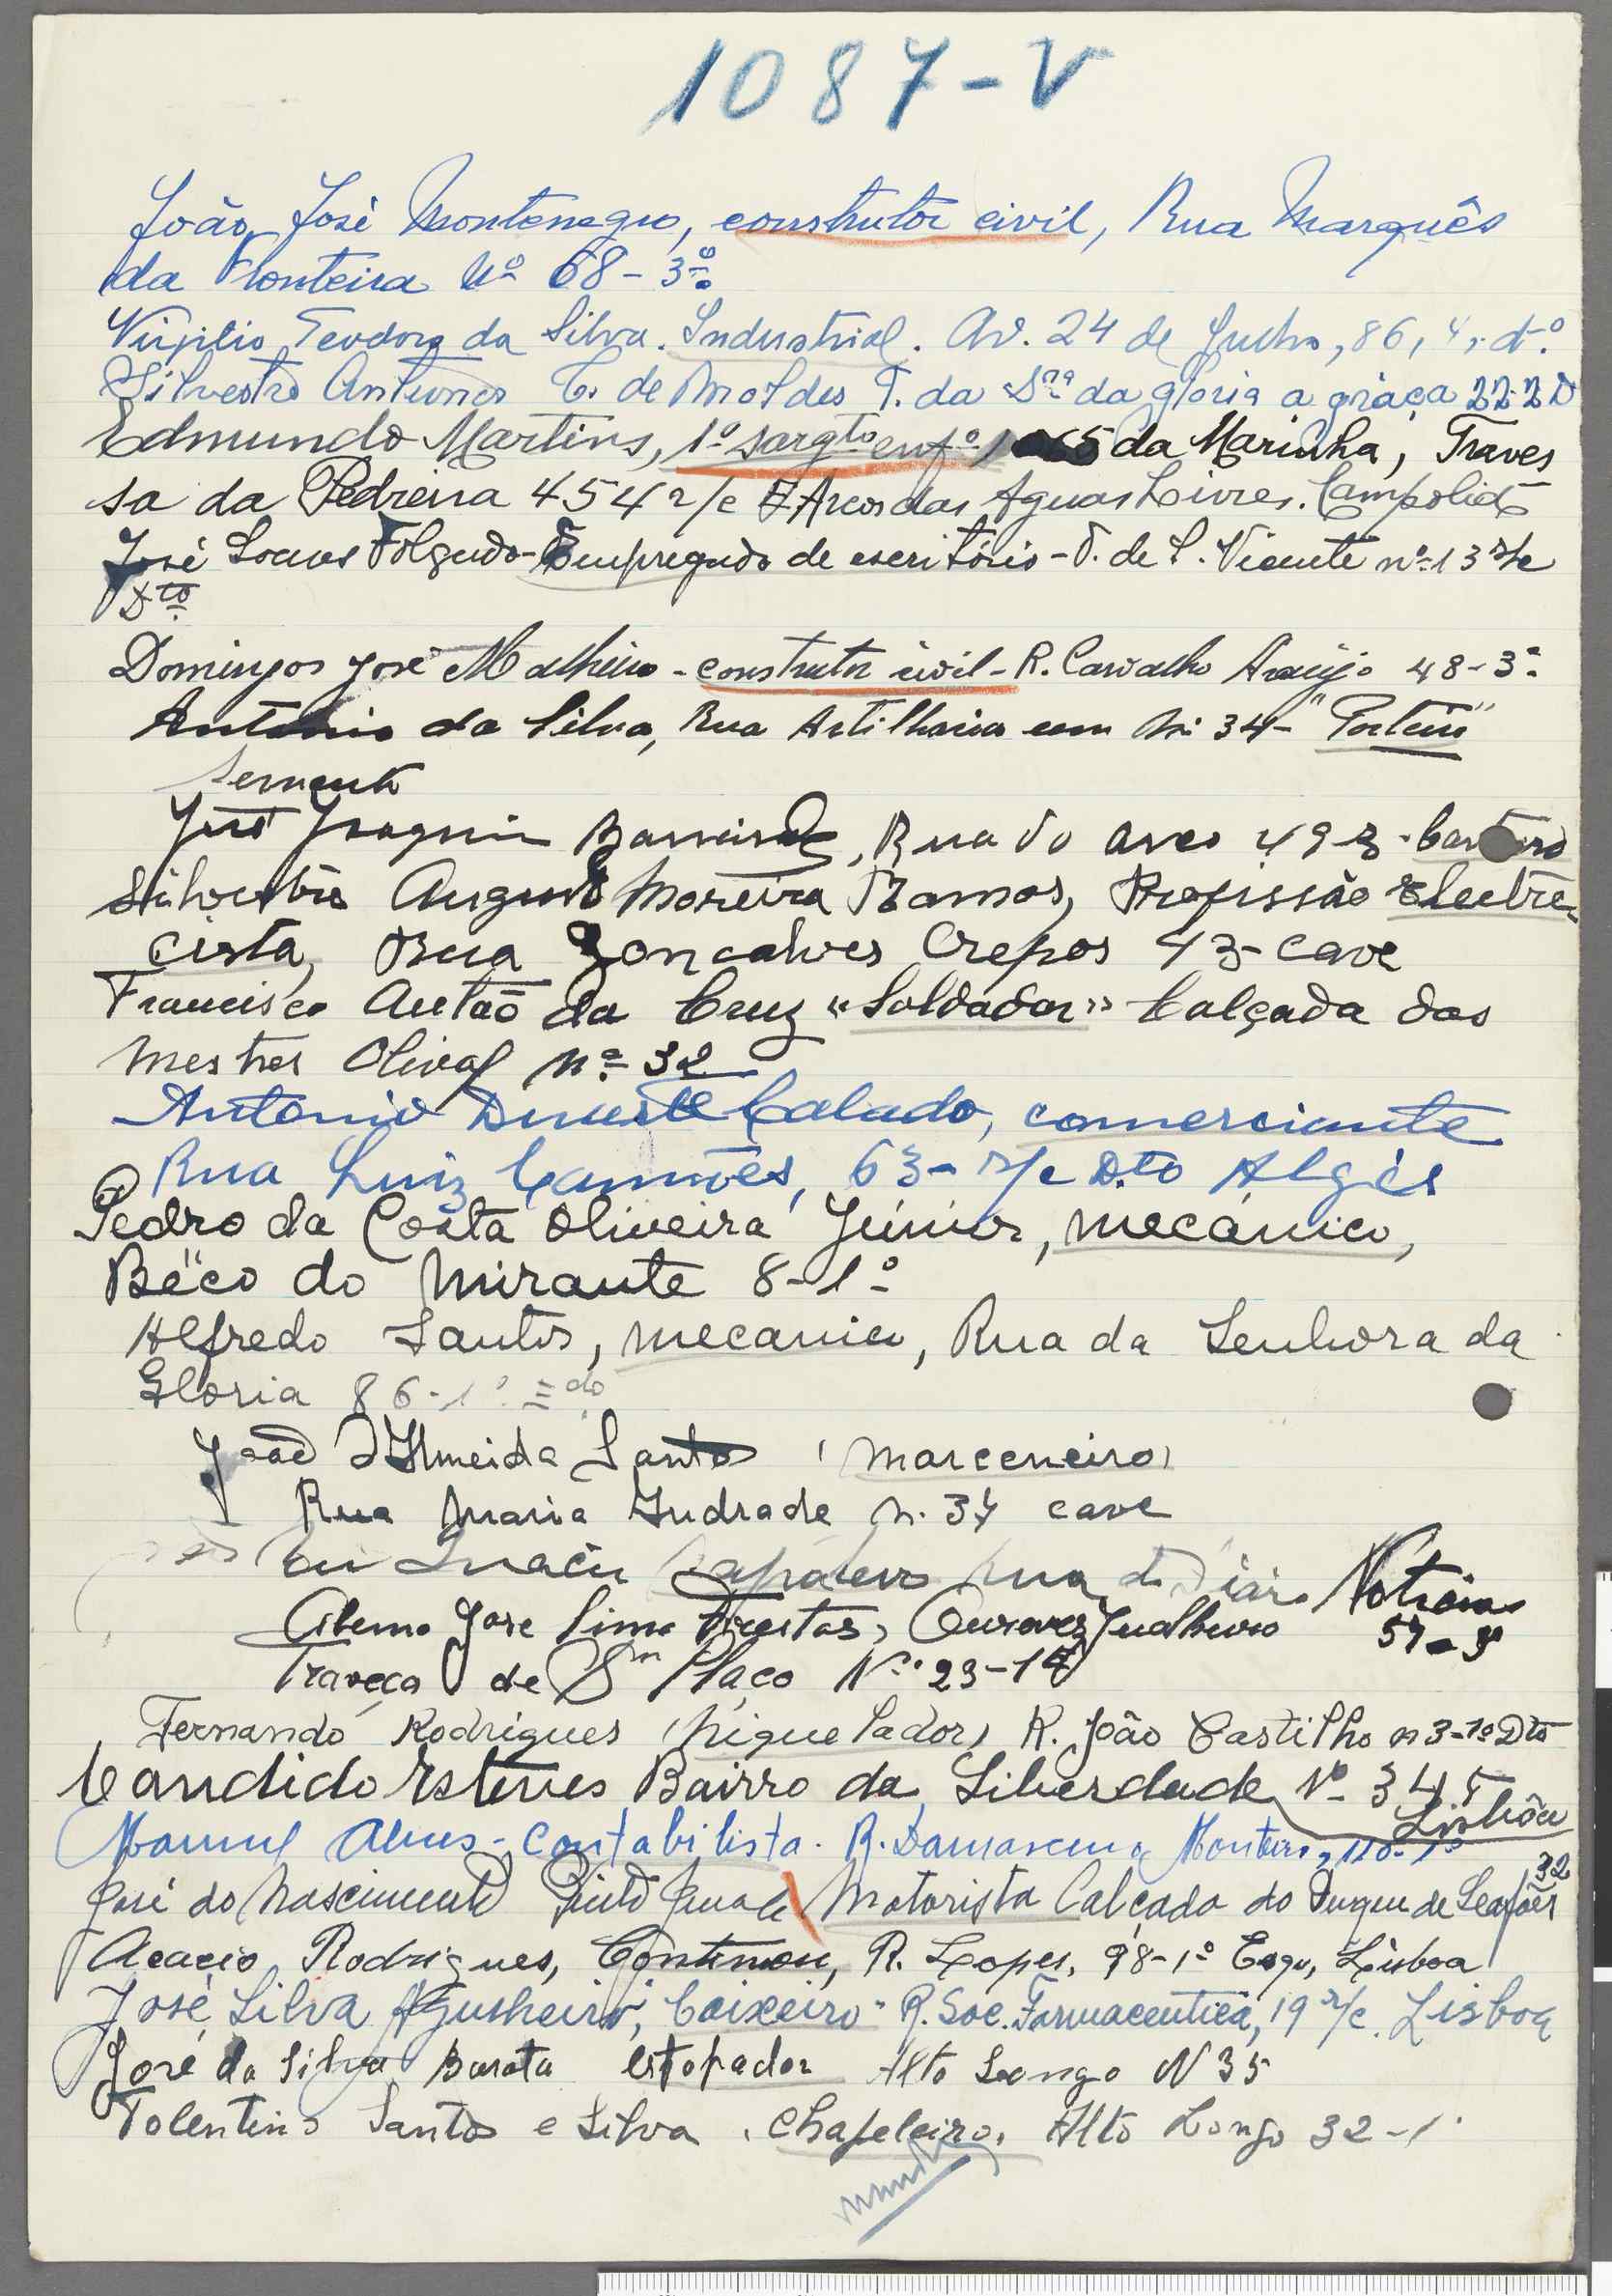 1087-V
João José Montenegro, construtor civil, Rua Marquês
da Fronteira Nº 68-3º
Virgilio Teodoro da Silva. Industrial. Av. 24 de Julho, 86, 4, dº
Silvestre Antunes T. de Moldes T. da Srª da gloria a graça 22-2 D
Edmundo Martins, 1º sargtº enfº da Marinha, Traves
sa da Pedreira 454 r/c E Arcos das Aguas Livres. Campolide
José Folgado - Empregado de escritório - de S. Vicente nº 13 r/c
Dtº
Domingos José Malheiro - construtor civil - R. Carvalho Araújo 48-3º
António da Silva, Rua Artilharia um Nº 34 - "Porteiro"
Servente
José Joaquim, Rua do Arco 49
Silvestre Augusto Moreira Ramos, Profissão Electre-
cista, Rua Gonçalves Crepos 43-cave
Francisco Antaõ da Cruz «Soldador» Calçada dos
Mestres Olival nº 32
Antonio Duarte Calado, comerciante
Rua Luiz Camões, 63-r/c D.to Algés
Pedro da Costa Oliveira Júnior, mecânico,
Bêco do Mirante 8-1º
Alfredo Santos, mecanico, Rua da Senhora da
Gloria 86-1º Edo
João d'Almeida Santos (Marceneiro)
Rua Maria Andrade N. 37 cave
Sapateiro Rua do Diário Noticias
57-3º
José Lima Freitas,
Traveça de Plaço Nº 23-1º
Fernando Rodrigues (Niquelador) R. João Castilho nº 3-1º Dto
Candido Esteves Bairro da Liberdade Nº 345
Lisbôa
Manuel Alves - Contabilista. R. Damasceno Monteiro, 110-1º
José do Nascimento Pinto Motorista Calçada do Duque de Leafões 32
Acacio Rodrigues, Contínuo, R. Lopes, 98-1º Esqº, Lisboa
José Silva, Caixeiro - R. Soc. Farmaceutica, 19 r/c. Lisboa
José da Silva Barata estofador Alto Longo N 35
Tolentino Santos e Silva, Chapeleiro, Alto Longo 32-1º